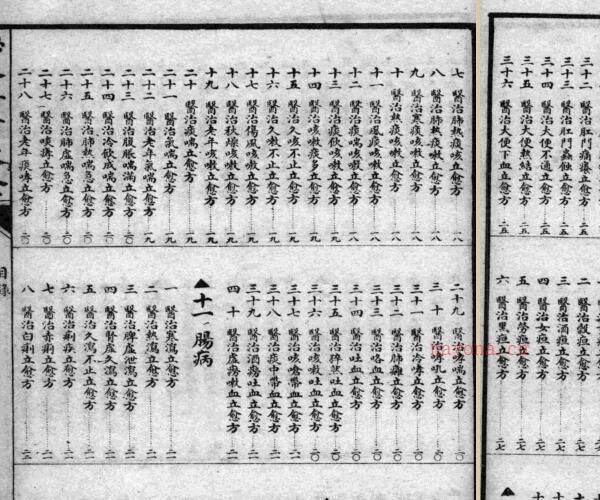 三十二 醫治肛門痛癢立愈方 二五
三十三 醫治肛門蟲蝕立愈方 二五
三十四 醫治大便不通立愈方 二五
三十五 醫治大便熱結立愈方 二五
三十六 醫治大便下血立愈方 二五
二 醫治穀疸立愈方 二七
三 醫治酒疸立愈方 二七
四 醫治女疸立愈方 二七
五 醫治勞疸立愈方 二七
六 醫治黑疸立愈方 二七
七 醫治肺熱痰咳立愈方 一八
八 醫治肺熱痰嗽立愈方 一八
九 醫治寒痰咳嗽立愈方 一八
十 醫治熱痰咳嗽立愈方 一八
十一 醫治風痰咳嗽立愈方 一八
十二 醫治痰喘咳嗽立愈方 一八
十三 醫治痰飲咳嗽立愈方 一八
十四 醫治咳嗽痰多立愈方 一九
十五 醫治久咳不止立愈方 一九
十六 醫治久嗽不止立愈方 一九
十七 醫治傷風咳嗽立愈方 一九
十八 醫治秋燥咳嗽立愈方 一九
十九 醫治老年咳嗽立愈方 一九
二十 醫治痰喘立愈方 一九
二十一 醫治氣喘立愈方 一九
二十二 醫治老年氣喘立愈方 一九
二十三 醫治腹脹喘滿立愈方 二〇
二十四 醫治冷飲痰喘立愈方 二〇
二十五 醫治肺熱喘急立愈方 二〇
二十六 醫治肺虛喘急立愈方 二〇
二十七 醫治痰哮立愈方 二〇
二十八 醫治老年痰哮立愈方 二〇
二十九 醫治哮喘立愈方 二〇
三十 醫治哮吼立愈方 二〇
三十一 醫治冷哮立愈方 二〇
三十二 醫治肺癰立愈方 二〇
三十三 醫治咯血立愈方 二〇
三十四 醫治吐血立愈方 二〇
三十五 醫治猝然吐血立愈方 二〇
三十六 醫治咳嗽吐血立愈方 二〇
三十七 醫治咳嗆帶血立愈方 二一
三十八 醫治痰中帶血立愈方 二一
三十九 醫治酒癆吐血立愈方 二一
四十 醫治虛癆嗽血立愈方 二一
▲十一 腸病
一 醫治寒瀉立愈方 二一
二 醫治熱瀉立愈方 二一
三 醫治脾虛久瀉立愈方 二一
四 醫治腎虛久瀉立愈方 二一
五 醫治久瀉不止立愈方 二一
六 醫治痢疾立愈方 二一
七 醫治赤痢立愈方 二一
八 醫治白痢立愈方 二二
目錄